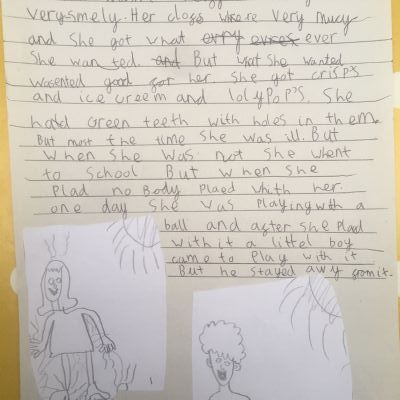 verysmely. Her clogs where very mucy
and She got what erry evres ever
She wanted. and But wat She wanted
wasented good for her. She got crisps
and ice creem and lolypops. She
hated Green teeth with holes in them.
But most the time She was ill. But
when She was not She whent
to School But when She
Plad no Body Plaed whith her.
one day She was Playing with a
ball and after she Plad
with it a littel boy
came to Play with it
But he Stayed awy from it.